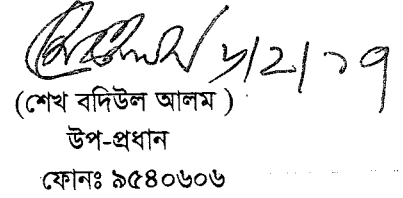 (শেখ বদিউল আলম )
উপ-প্রধান
ফোনঃ ৯৫৪০৬০৬